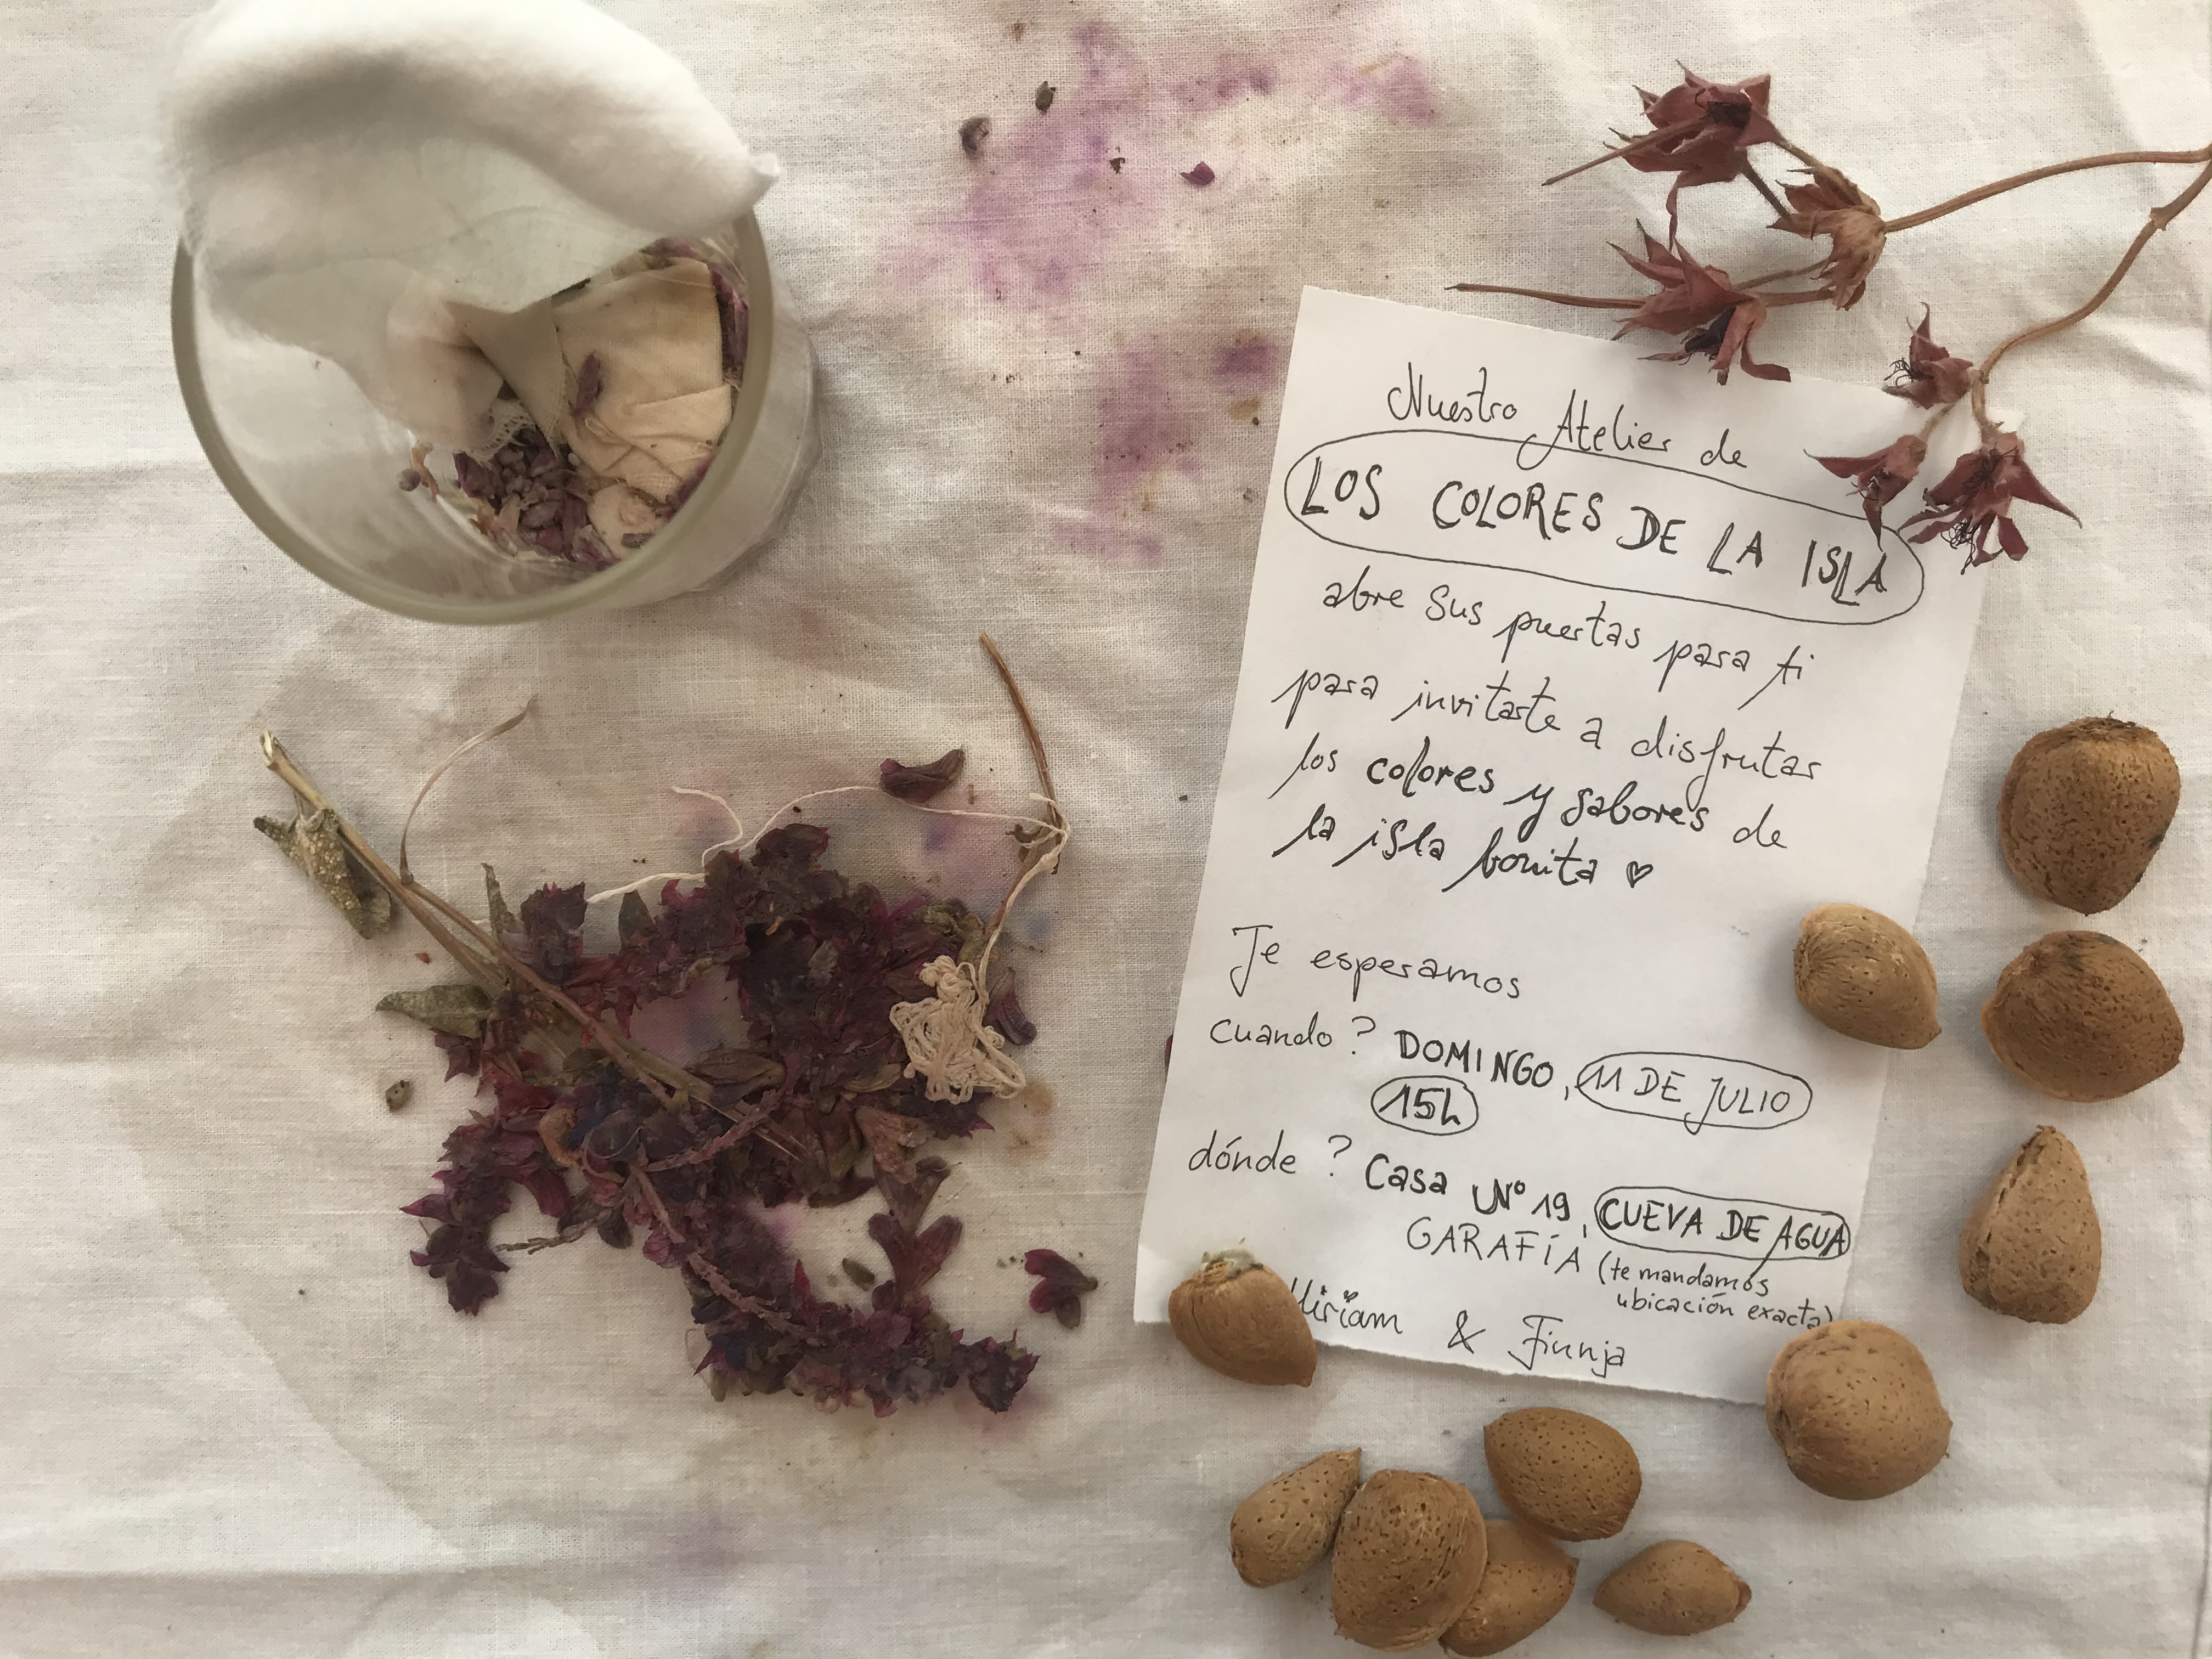 Nuestro Atelier de
LOS COLORES DE LA ISLA
abre sus puertas para ti
para invitarte a disfrutar
los colores y sabores de
la isla bonita ♡
Te esperamos
cuando? DOMINGO, 11 DE JULIO
15h
dónde? Casa Nº 19, CUEVA DE AGUA
GARAFÍA (te mandamos
ubicación exacta)
Miriam & Finnja